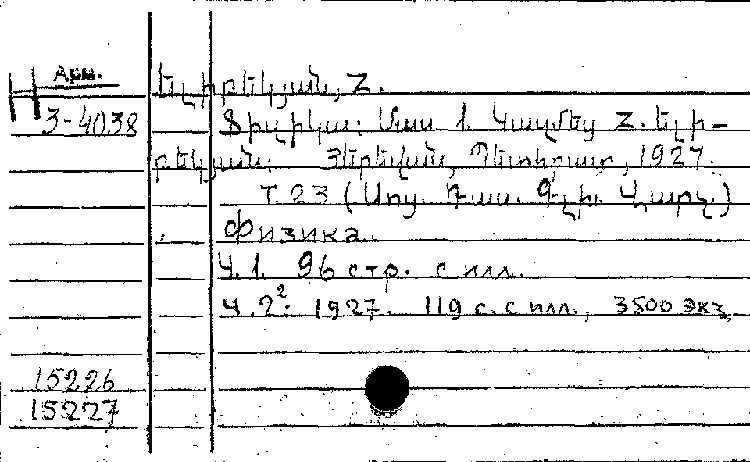 Арм.
Н З-4038
Ելիբեկյան, Հ.
Ֆիզիկա: Մաս 1. Կազմեց Հ. Ելի-
բեկյան: Յերեվան, Պետհրատ, 1927.
Т. 23 (Սոց. Դաս. Գլխ. Վարչ.)
Физика.
Ч. 1. 96 стр. с илл.
Ч. 2²: 1927. 119 с. с илл., 3500 экз.
15226
15227